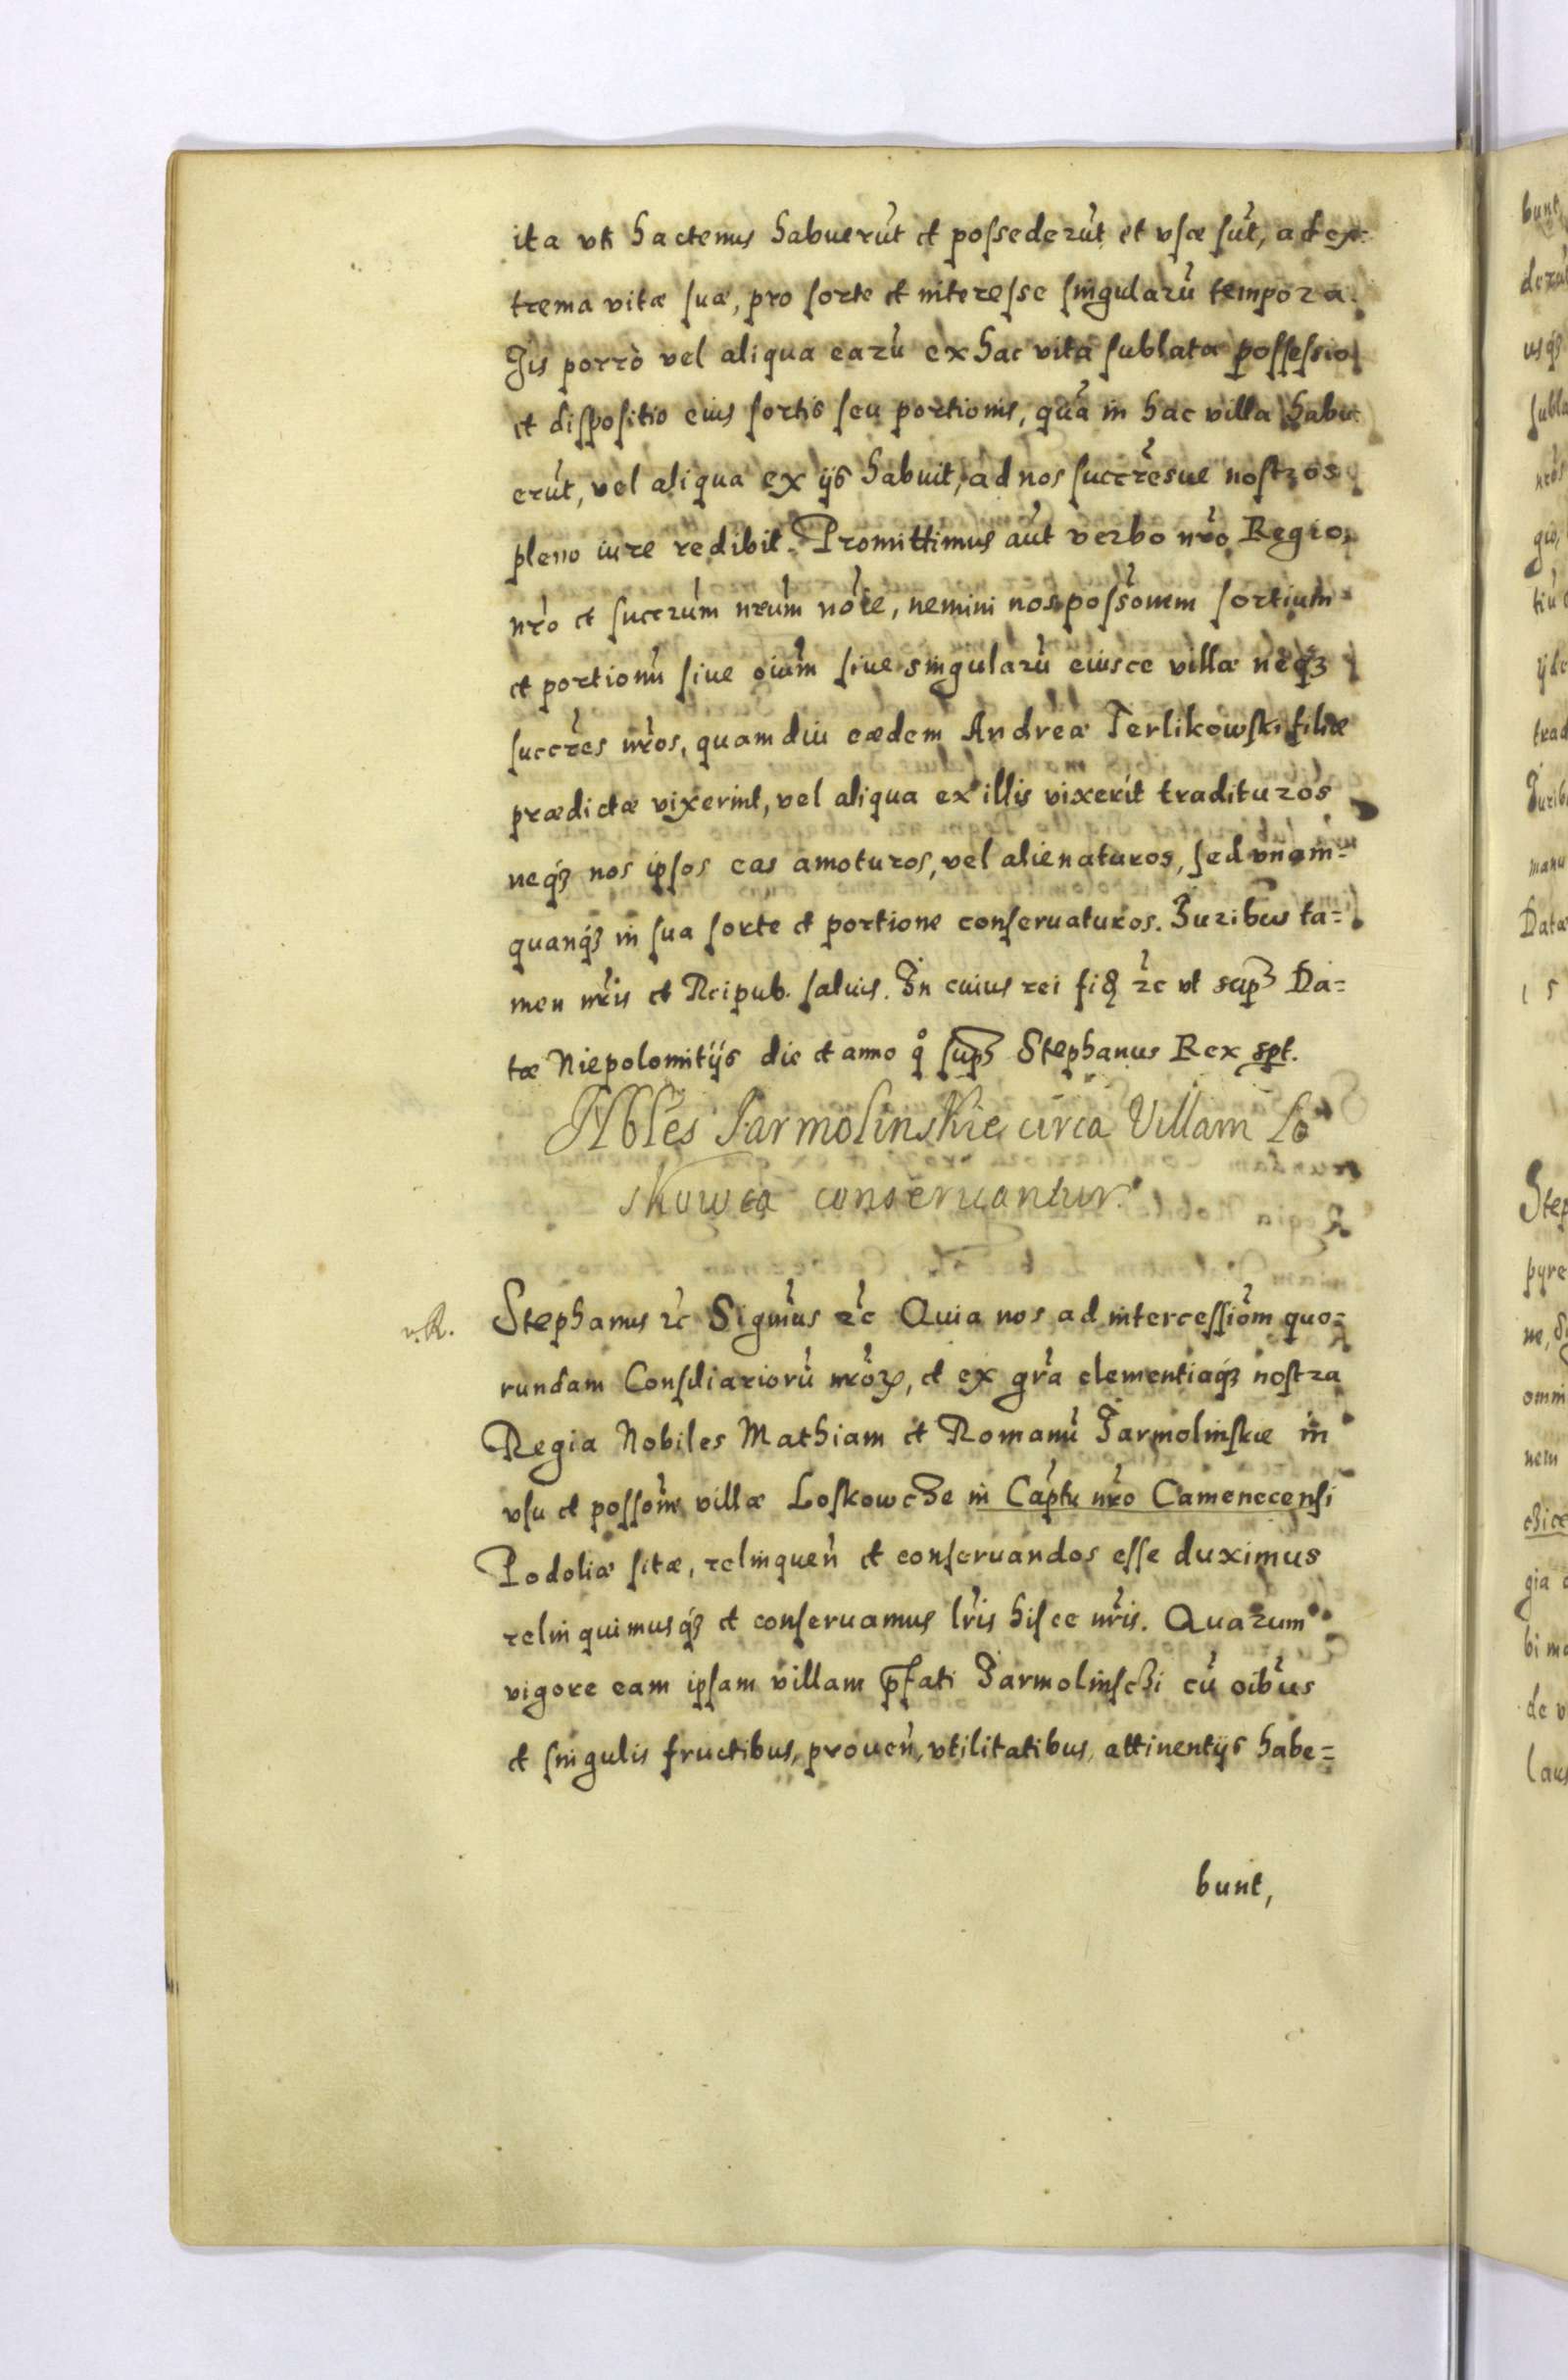 ita vti hactenus habuerũt et possederũt et vsæ sũt, ad ex=
trema vitæ suæ, pro sorte et interesse singularũ tempora.
Jis porrò vel aliqua earũ ex hac vita sublata possessio
et dispositio eius sortis seu portionis, quã in hac villa habu
erũt, vel aliqua ex ijs habuit, ad nos succresue nostros
pleno iure redibit. Promittimus aũt verbo nro Regio,
nro et succrum nrum noie, nemini nos possonem sortium
et portionũ siue oium siue singularũ eiusce villæ neq3
succres nros, quamdiu eædem Andreæ Terlikowski filiæ
prædictæ vixerint, vel aliqua ex illis vixerit tradituros
neq3 nos ipsos eas amoturos, vel alienaturos, sed vnam=
quanq3 in sua sorte et portione conseruaturos. Juribus ta=
men nris et Reipub. saluis. In cuius rei fid &c vt sup Da=
tæ Niepolomitijs die et anno q sup Stephanus Rex spt.
Nbles Jarmolinskie circa Villam Lo
skowca conseruantur.
v.R. Stephanus &c Sigmus &c Quia nos ad intercessiom quo=
rundam Consiliariorũ nrõꝝ, et ex gra clementiaq3 nostra
Regia Nobiles Mathiam et Romanũ Jarmolinskie in
vsu et possone villæ Loskowcze in Captu nro Camenecensi
Podoliæ sitæ, relinquen et conseruandos esse duximus
relinquimusq3 et conseruamus lris hisce nris. Quarum
vigore eam ipsam villam pfati Jarmolinschi cũ oibus
et singulis fructibus, prouen, vtilitatibus, attinentijs habe=
bunt,